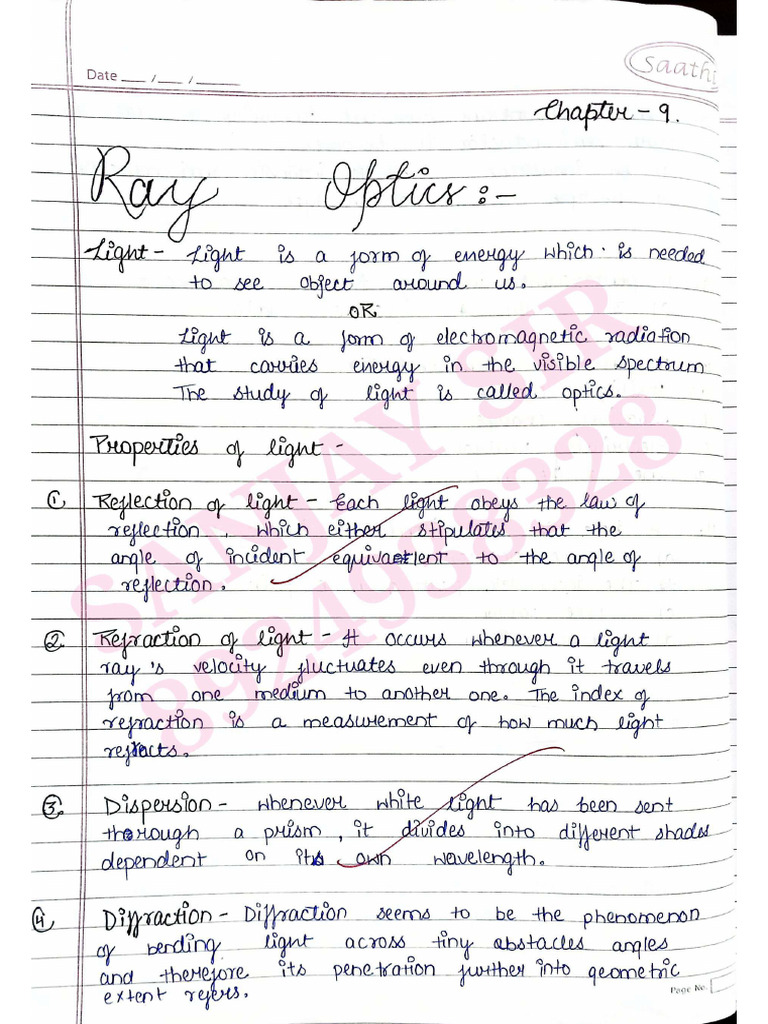 Date ___ / ___ / _____
Saathi
Chapter - 9.
Ray Optics :-
Light - Light is a form of energy which is needed
to see object around us.
OR
Light is a form of electromagnetic radiation
that carries energy in the visible spectrum
The study of light is called optics.
Properties of light -
① Reflection of light - Each light obeys the law of
reflection, which either stipulates that the
angle of incident equivalent to the angle of
reflection.
② Refraction of light - It occurs whenever a light
ray's velocity fluctuates even through it travels
from one medium to another one. The index of
refraction is a measurement of how much light
refracts.
③ Dispersion - Whenever white light has been sent
thorough a prism, it divides into different shades
dependent on its own wavelength.
④ Diffraction - Diffraction seems to be the phenomenon
of bending light across tiny obstacles angles
and therefore its penetration further into geometric
extent refers.
Page No.
SANJAY SIR
8924938328